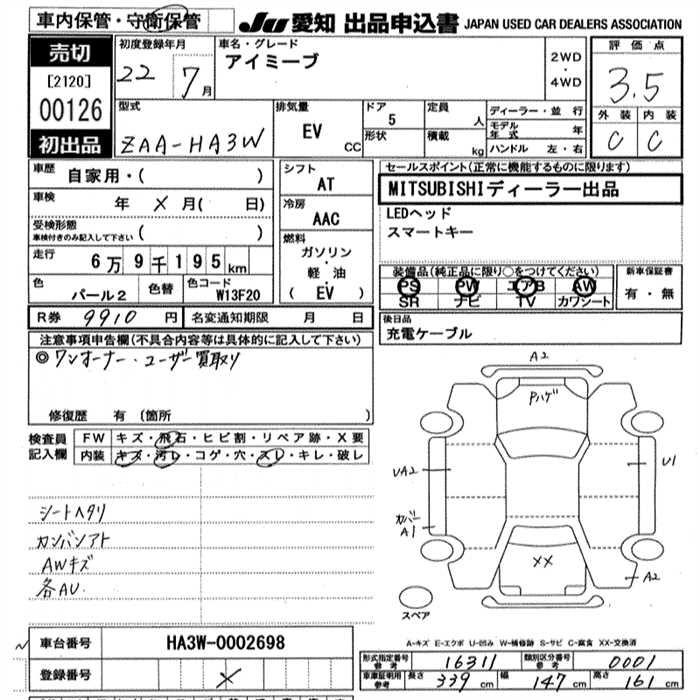 車内保管・守衛保管
JU 愛知 出品申込書 JAPAN USED CAR DEALERS ASSOCIATION
売切
[2120]
00126
初出品
初度登録年月
22 7月
車名・グレード
アイミーブ
2WD
・
4WD
評価点
3.5
外装 内装
C C
型式
ZAA-HA3W
排気量
EV
CC
ドア
5
定員 人
形状
積載 kg
ディーラー・並行
モデル年式 年
ハンドル 左・右
車歴 自家用・( )
車検 年 × 月( 日)
受検形態
車検付きのみ記入して下さい ( )
走行 6万9千195km
色 パール2
色替
色コード W13F20
シフト
AT
冷房
AAC
燃料
ガソリン
・
軽・油
( EV )
セールスポイント(正常に機能するものに限ります)
MITSUBISHIディーラー出品
LEDヘッド
スマートキー
装備品(純正品に限り○をつけてください)
PS PW エアB AW
SR ナビ TV カワシート
新車保証書
有・無
R券 9910 円
名変通知期限 月 日
後日品
充電ケーブル
注意事項申告欄(不具合内容等は具体的に記入して下さい)
◎ワンオーナー・ユーザー買取り
修復歴 有 (箇所 )
検査員
記入欄
FW キズ・飛石・ヒビ割・リペア跡・X要
内装 キズ・汚レ・コゲ・穴・スレ・キレ・破レ
シートヘタリ
カンバンアト
AWキズ
各AU
A2
Pハゲ
UA2
U1
カバー
A1
XX
A2
スペア
A-キズ E-エクボ U-凹み W-補修跡 S-サビ C-腐食 XX-交換済
車台番号 HA3W-0002698
登録番号 ×
形式指定番号
参考
16311
類別区分番号
参考
0001
車庫証明用
参考
長さ 339 cm 幅 147 cm 高さ 161 cm